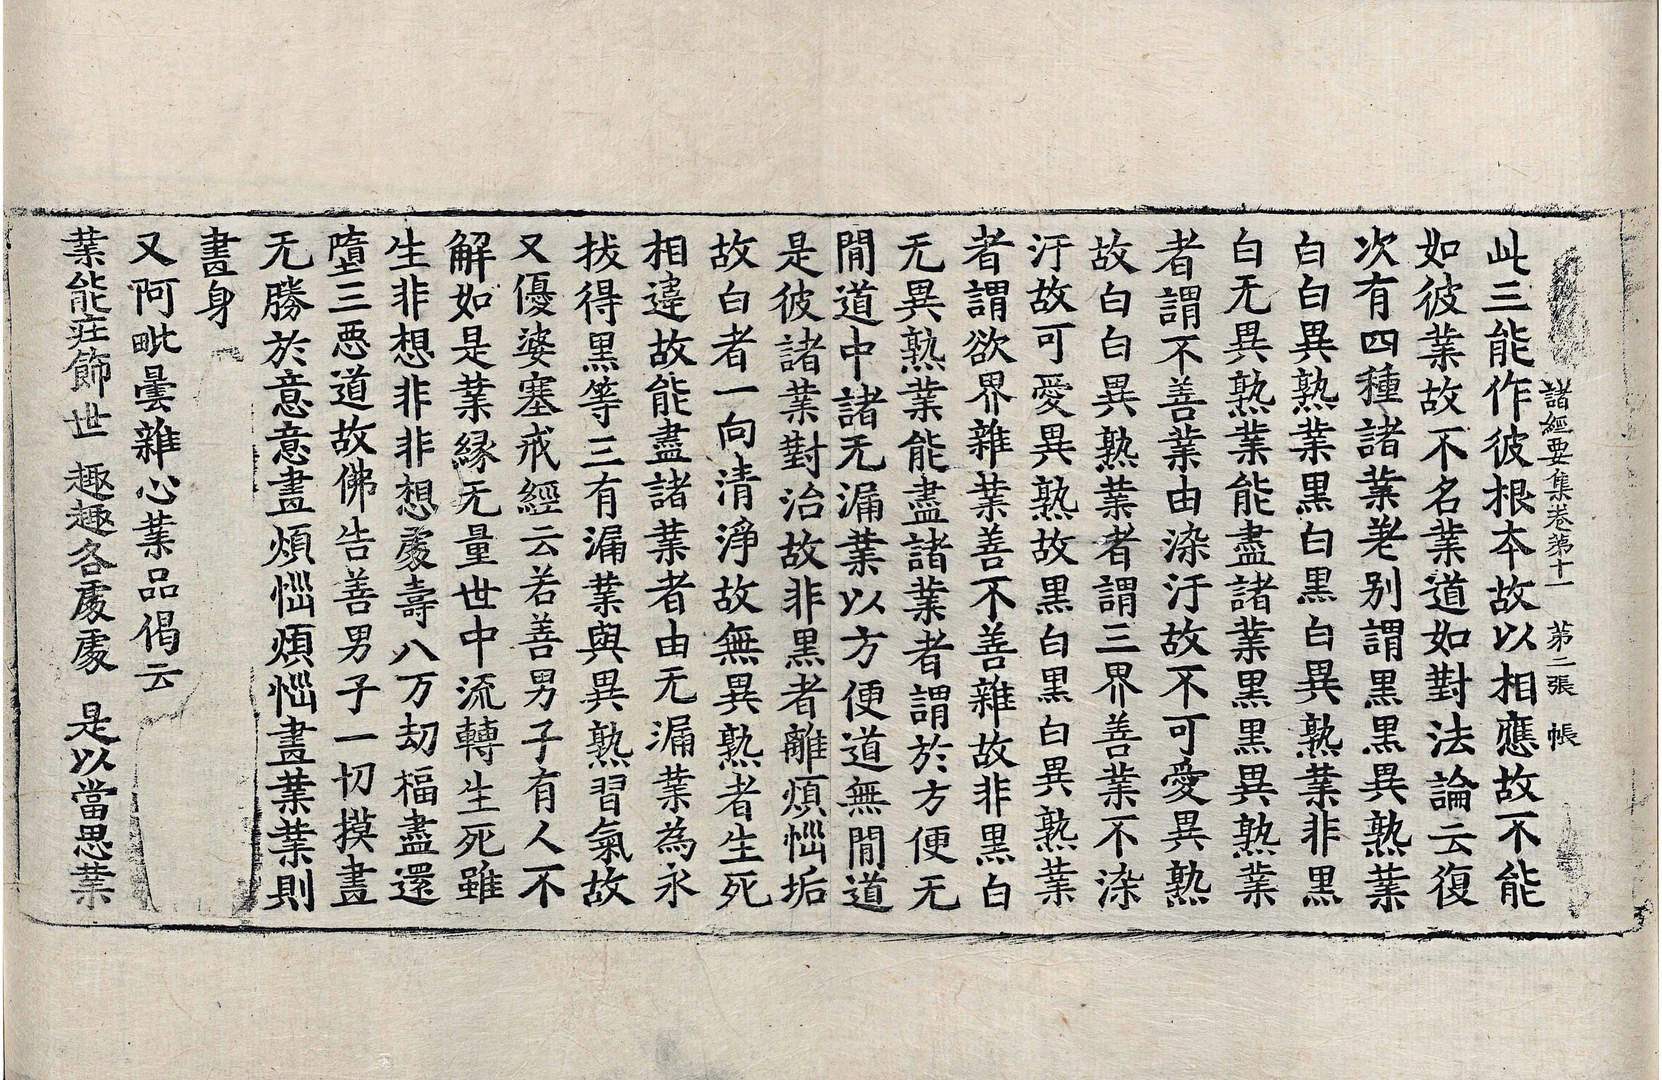 諸經要集卷第十一 第二張 帳
此三能作彼根本故以相應故不能
如彼業故不名業道如對法論云復
次有四種諸業差別謂黒黒異熟業
白白異熟業黒白黒白異熟業非黒
白无異熟業能盡諸業黒黒異熟業
者謂不善業由染汙故不可愛異熟
故白白異熟業者謂三界善業不染
汙故可愛異熟故黒白黒白異熟業
者謂欲界雜業善不善雜故非黒白
无異熟業能盡諸業者謂於方便无
間道中諸无漏業以方便道無間道
是彼諸業對治故非黒者離煩惱垢
故白者一向清淨故無異熟者生死
相違故能盡諸業者由无漏業為永
拔得黒等三有漏業與異熟習氣故
又優婆塞戒經云若善男子有人不
解如是業縁无量世中流轉生死雖
生非想非非想處壽八万劫福盡還
墮三惡道故佛告善男子一切摸畫
无勝於意意畫煩惱煩惱畫業業則
畫身
又阿毗曇雜心業品偈云
業能莊飾世 趣趣各處處 是以當思業